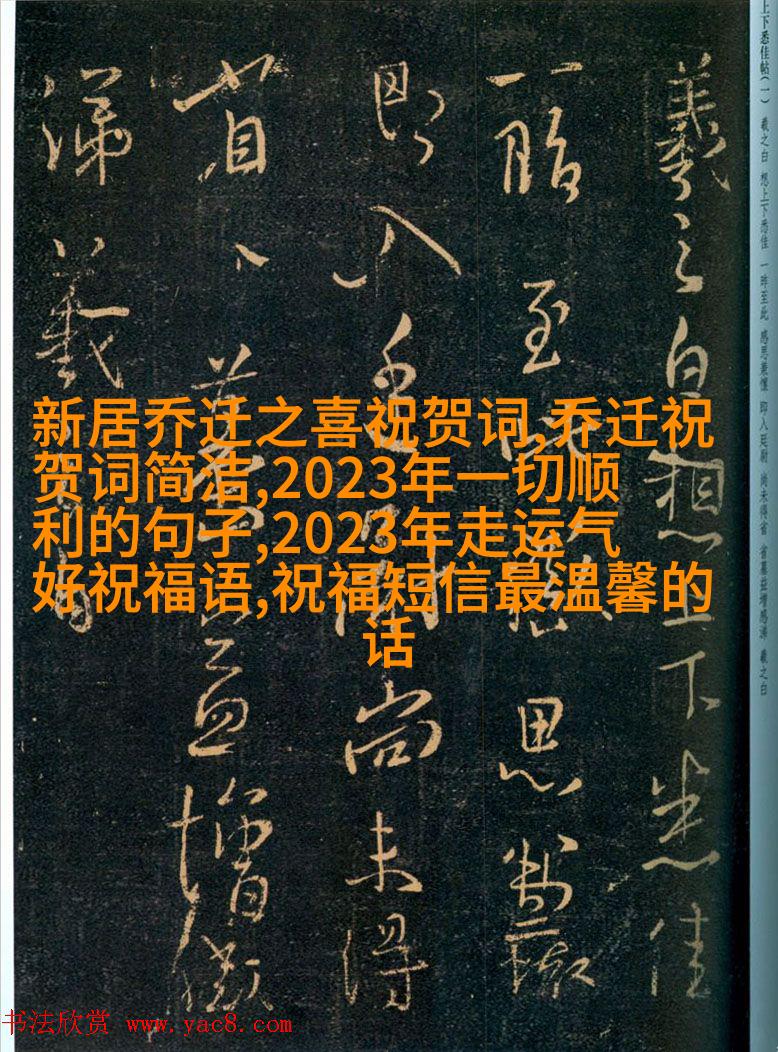 上下悉佳帖(一) 羲之白 想上下悉佳 一昨至此 感思兼 即入廷尉 尚未得省 省墓益增感涕 羲之白
羲之白想上下悉佳
一昨至此感思
即入 尚未得
省、墓益增感
涕羲之白
新居乔迁之喜祝贺词,乔迁祝
贺词简洁,2023年一切顺
利的句子,2023年走运气
好祝福语,祝福短信最温馨的
话
书法欣赏 www.yac8.com